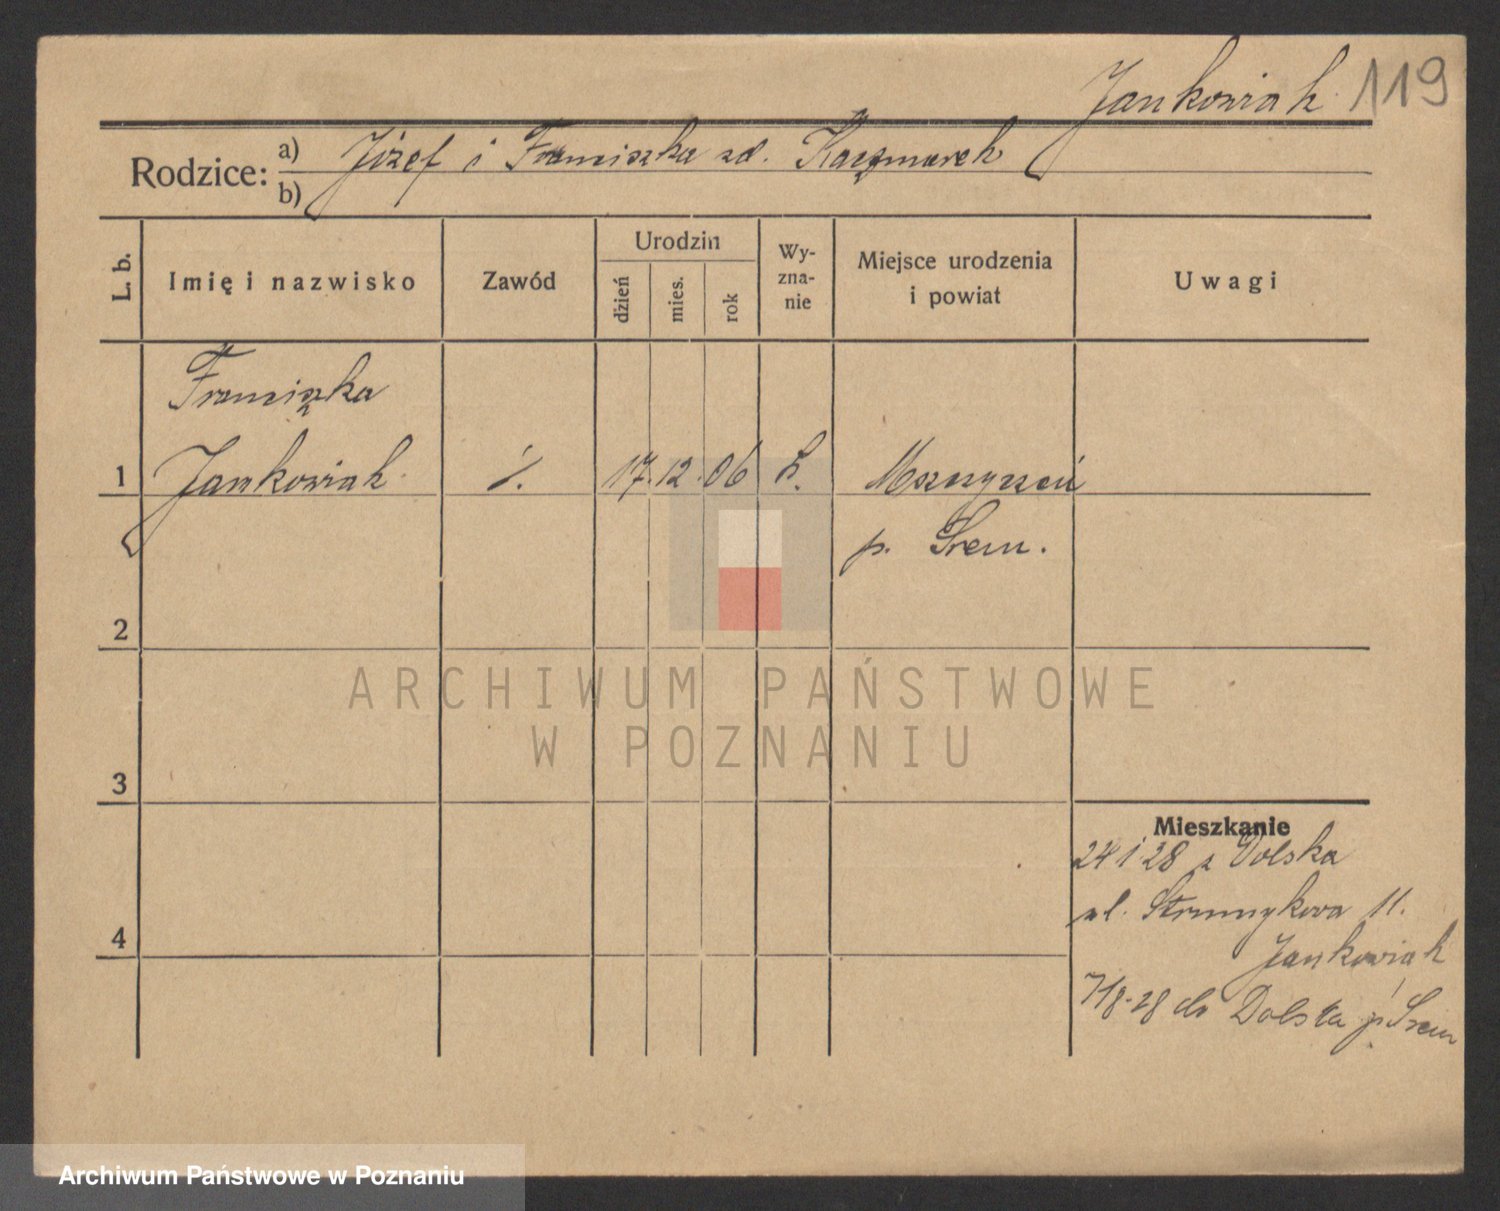 Jankowiak 119
Rodzice: a) Józef i Franciszka zd. Kaczmarek
b)
L. b.
Imię i nazwisko
Zawód
Urodzin
dzień
mies.
rok
Wy-
zna-
nie
Miejsce urodzenia
i powiat
Uwagi
Franciszka
1 Jankowiak 17. 12. 06
p. Śrem.
2
ARCHIWUM PAŃSTWOWE
W POZNANIU
3
Mieszkanie
24 1 28 z Dolska
ul. 11.
4
Jankowiak
7/8-28 do Dolska p. Śrem
Archiwum Państwowe w Poznaniu